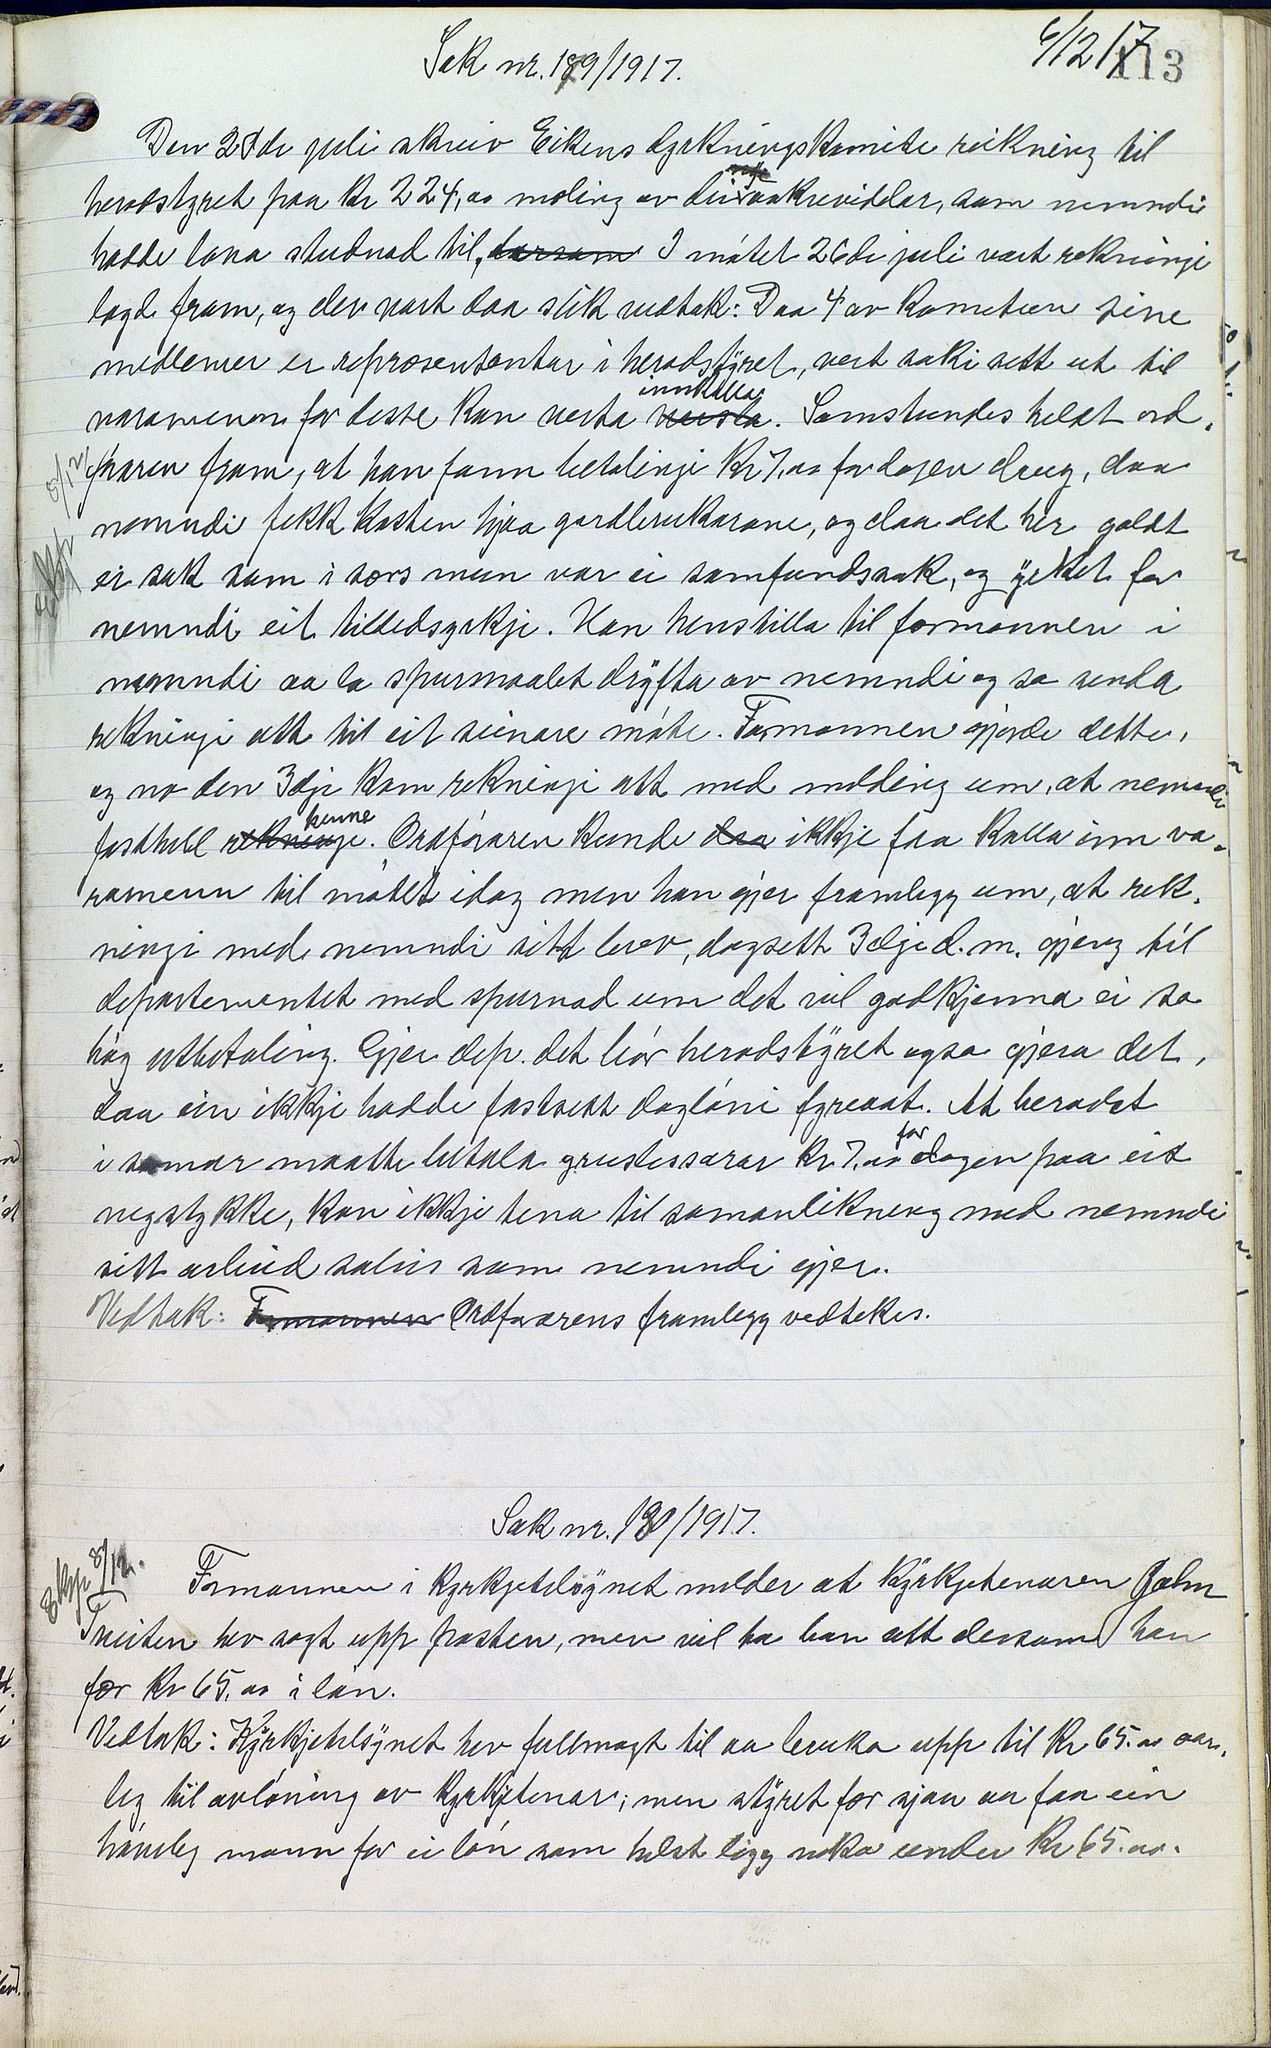 6/12/17
113
Sak nr. 179/1917.
Den de juli skreiv Eikens dyrkningskomite reikning til
heradstyret paa kr 224,00 moling av dei nye aakreviddar, som nemndi
hadde lova studnad til, darsom I mótet 26de juli vart rekningi
lagd fram, og der vart daa slik vedtak: Daa 4 av kometeen sine
medlemer er representantar i heradstyret, vert saki sett ut til
varamenn for desse kan verta innkalla. Samstundes heldt ord-
føraren fram, at han fann betalingi Kr 7,00 for dagen drug, daa
nemndi fekk kosten hjaa gardbrukarane, og daa det her galdt
ei sak som i sers mun var ei samfundssak, og yrket for
nemndi eit tillitsyrkje. Han henstilla til formannen i
nemndi aa la spursmaalet drøfta av nemndi og so senda
rekningi att til eit seinare móte. Formannen gjorde dette,
og no den 3dje kom rekningi att med melding um, at nemndi
fasthell rekningi henne. Ordføraren kunde daa ikkje faa kalla inn va-
ramenn til mótet idag men han gjer framlegg um, at rek-
ningi med nemndi sitt brev, dagsett 3dje d.m. gjeng til
departementet med spurnad um det vil godkjenna ei so
hóg utbetaling. Gjer dep. det bór heradstyret ogso gjera det,
daa ein ikkje hadde fastsett daglóni fyreaat. At heradet
i sumar maatte betala gruslessarar Kr 7,00 for dagen paa eit
vegstykke, kan ikkje tena til samanlikning med nemndi
sitt arbeid soleis som nemndi gjer.
Vedtak: Formannen Ordførarens framlegg vedtekes.
Sak nr. 180/1917.
Eksp 8/12.
Formannen i kyrkjetilsynet melder at kyrkjetenaren John
Tveiten hev sagt upp posten, men vil ha han att dersom han
fær Kr 65,00 i lón.
Vedtak: Kyrkjetilsynet hev fullmagt til aa bruka upp til Kr 65.00 aar-
leg til avlóning av kyrkjetenar; men styret fær sjaa aa faa ein
hóveleg mann for ei lón som helst ligg noko under Kr 65.00.